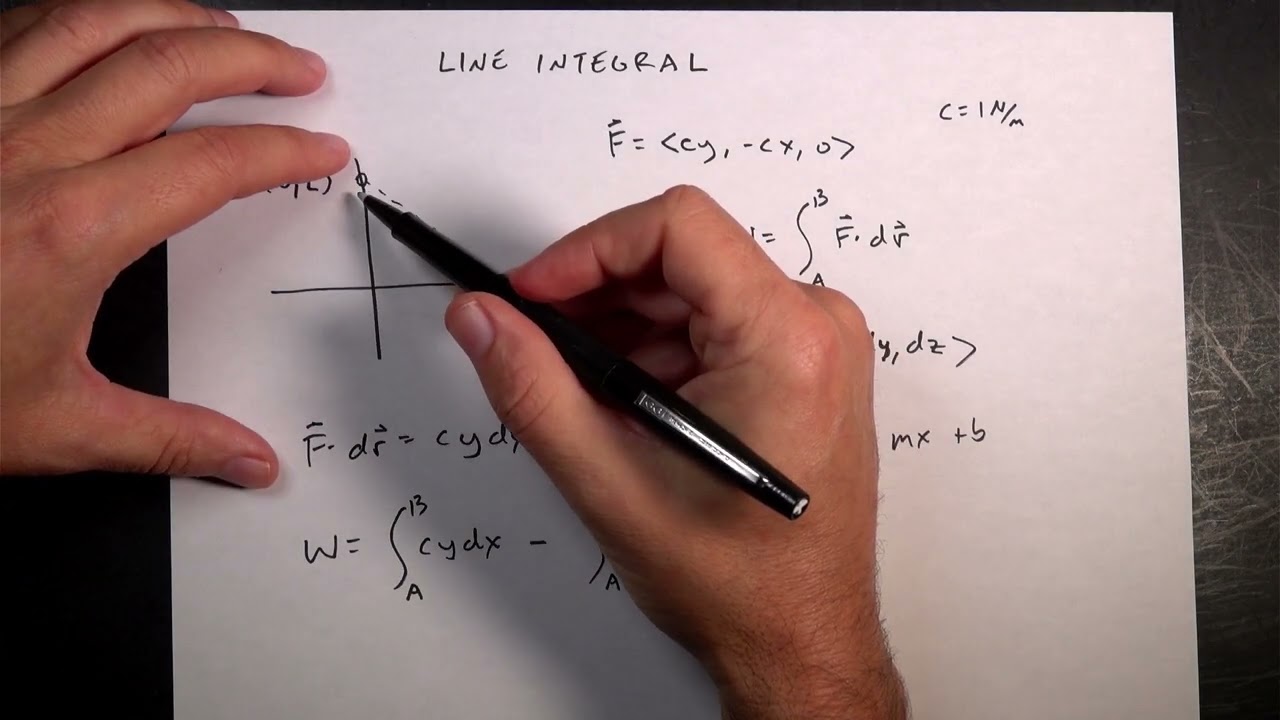 LINE INTEGRAL
C = 1 N/m
F⃗ = <cy, -cx, 0>
= ∫_A^B F⃗ · dr⃗
y, dz >
F⃗ · dr⃗ = cy d
mx + b
W = ∫_A^B cy dx - 
A